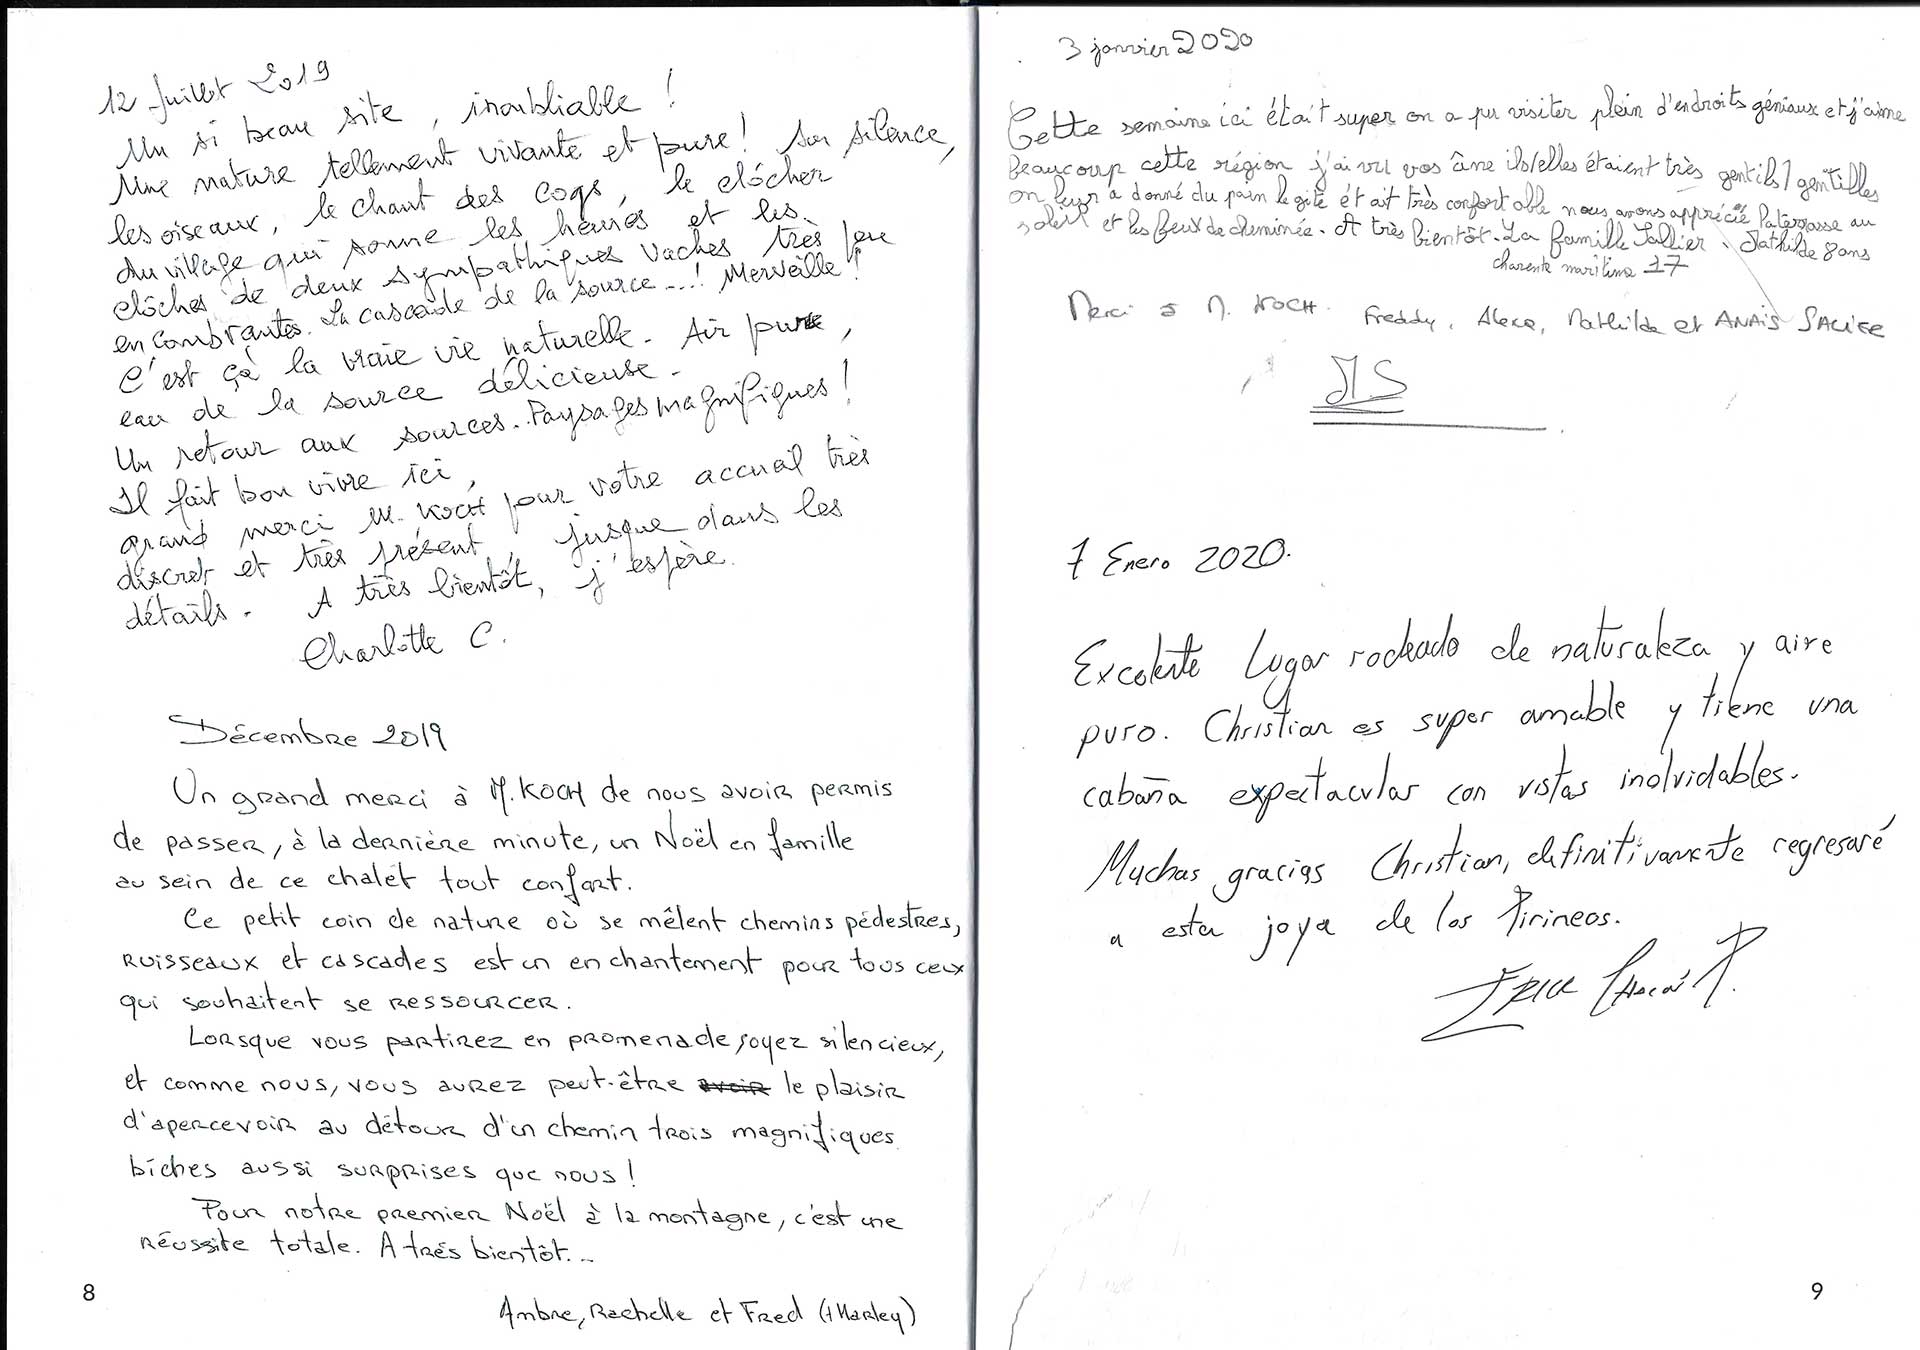 12 Juillet 2019
Un si beau site, inoubliable !
Une nature tellement vivante et pure ! Son silence,
les oiseaux, le chant des coqs, le clócher
du village qui sonne les heures et les
clôches de deux sympathiques vaches très peu
encombrantes. La cascade de la source...! Merveille !
C'est çà la vraie vie naturelle. Air pure,
eau de la source délicieuse.
Un retour aux sources.. Paysages magnifiques !
Il fait bon vivre ici,
grand merci M. KOCH pour votre accueil très
discret et très présent, jusque dans les
détails. A très bientôt, j'espère.
Charlotte C.
Décembre 2019
Un grand merci à M. KOCH de nous avoir permis
de passer, à la dernière minute, un Noël en famille
au sein de ce chalet tout confort.
Ce petit coin de nature où se mêlent chemins pédestres,
ruisseaux et cascades est un enchantement pour tous ceux
qui souhaitent se ressourcer.
Lorsque vous partirez en promenade, soyez silencieux,
et comme nous, vous aurez peut-être avoir le plaisir
d'apercevoir au détour d'un chemin trois magnifiques
biches aussi surprises que nous !
Pour notre premier Noël à la montagne, c'est une
réussite totale. A très bientôt...
Ambre, Rachelle et Fred (+Harley)
8
3 janvier 2020
Cette semaine ici était super on a pu visiter plein d'endroits géniaux et j'aime
Beaucoup cette région j'ai vu vos âne ils/elles étaient très gentils/gentilles
on leur a donné du pain le gite était très confortable nous avons apprécié la terrasse au
soleil et les feux de cheminée. A très bientôt. La famille Sallier. Mathilde 8 ans
charente maritime 17
Merci à M. KOCH. Freddy, Alexa, Mathilde et ANAÏS
MS
7 Enero 2020.
Excelente Lugar rodeado de naturaleza y aire
puro. Christian es super amable y tiene una
cabaña expectacular con vistas inolvidables.
Muchas gracias Christian, definitivamente regresaré
a esta joya de los Pirineos.
9